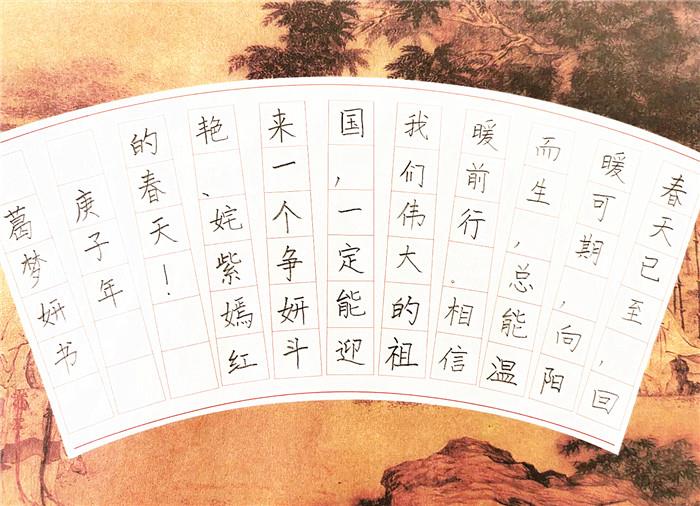 春天已至，回
暖可期，向阳
而生，总能温
暖前行。相信
我们伟大的祖
国，一定能迎
来一个争妍斗
艳、姹紫嫣红
的春天！
庚子年
葛梦妍书